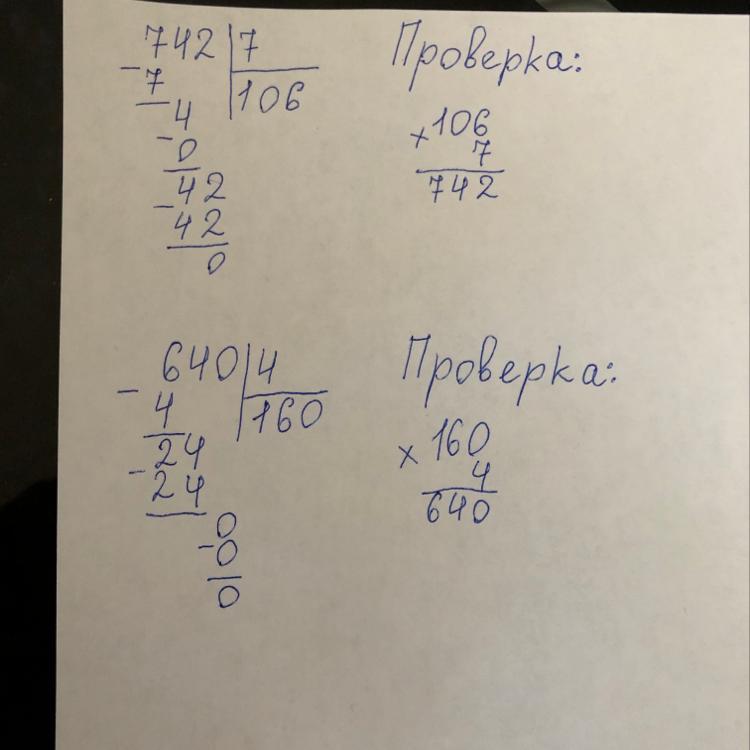 742 | 7
- 7 | 106
4
- 0
42
- 42
0
Проверка:
× 106
7
742
640 | 4
- 4 | 160
24
- 24
0
- 0
0
Проверка:
× 160
4
640